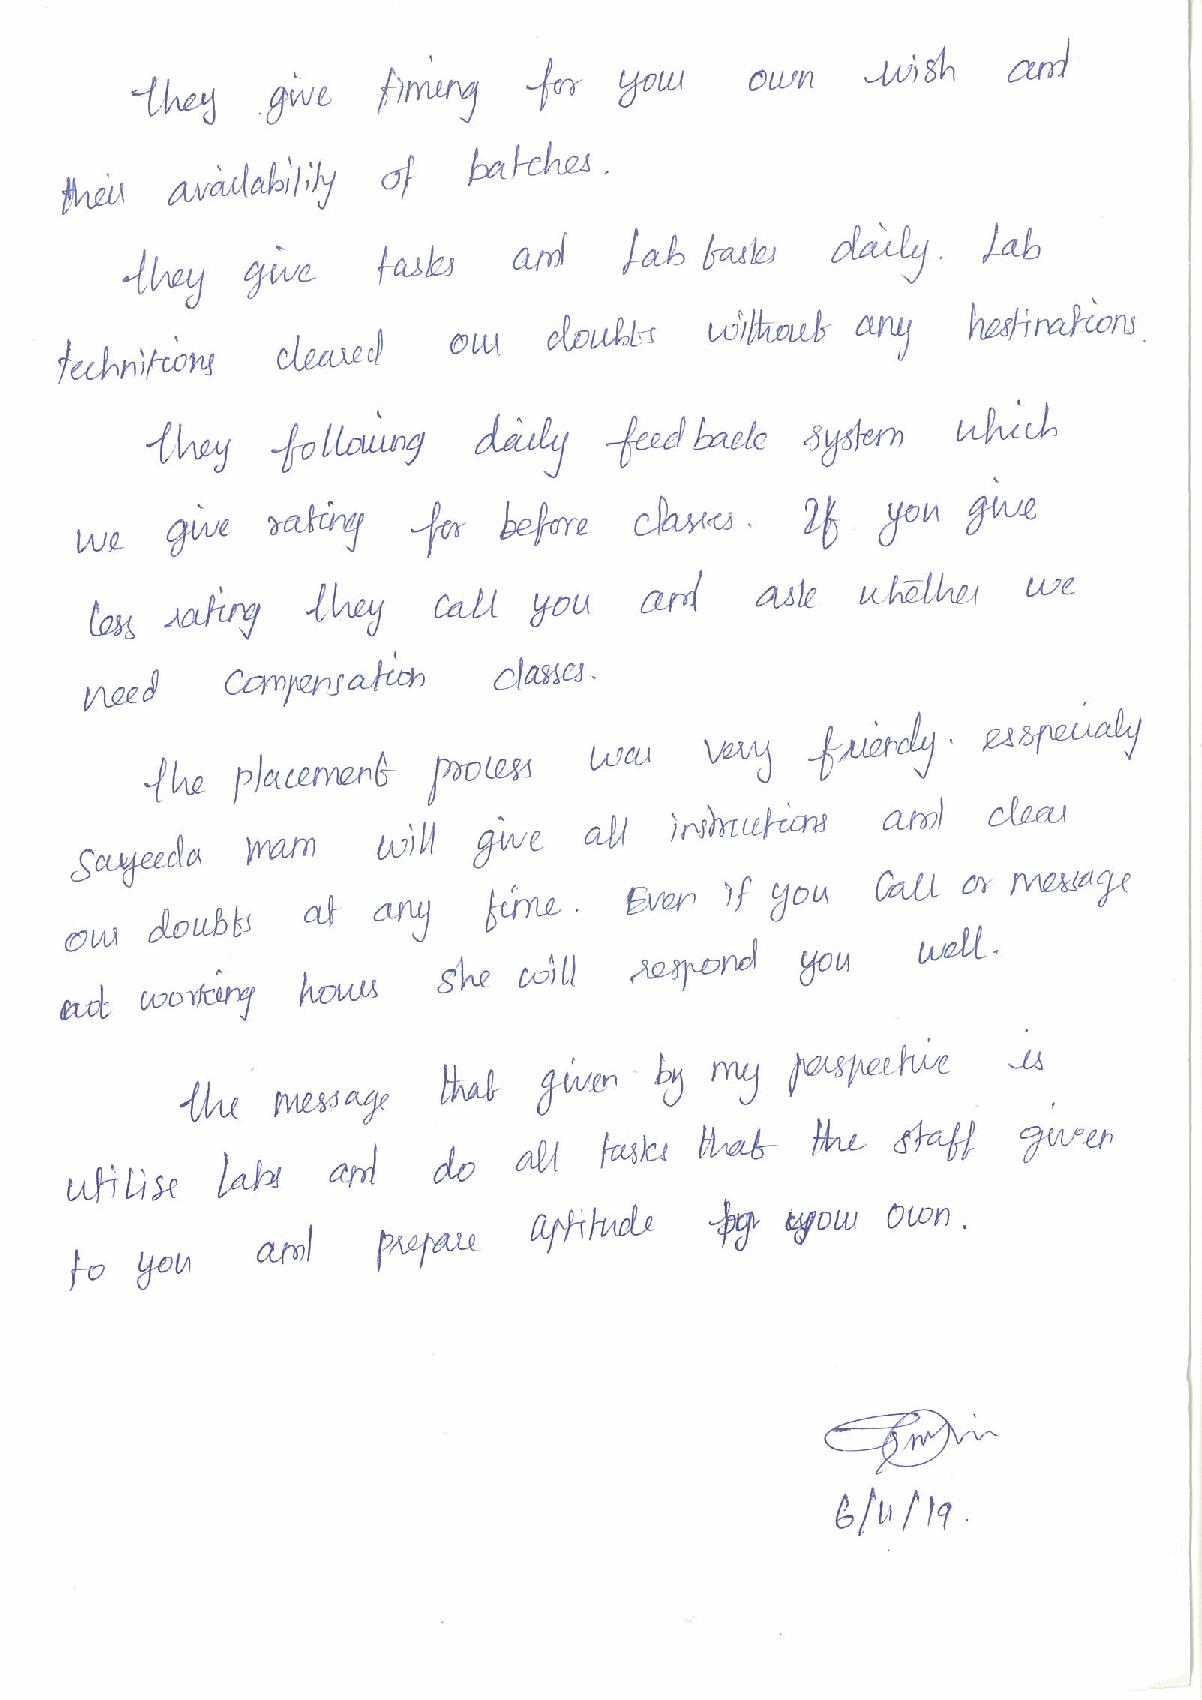 they give timing for your own wish and
their availability of batches.
they give tasks and Lab tasks daily. Lab
technitions cleared our doubts without any hestinations.
they following daily feedback system which
we give rating for before classes. If you give
less rating they call you and ask whether we
need compensation classes.
the placement process was very friendly. esspecialy
Sayeeda mam will give all instructions and clear
our doubts at any time. Even if you call or message
at working hours she will respond you well.
the message that given by my perspective is
utilise Labs and do all tasks that the staff given
to you and prepare aptitude by your own.
6/11/19.